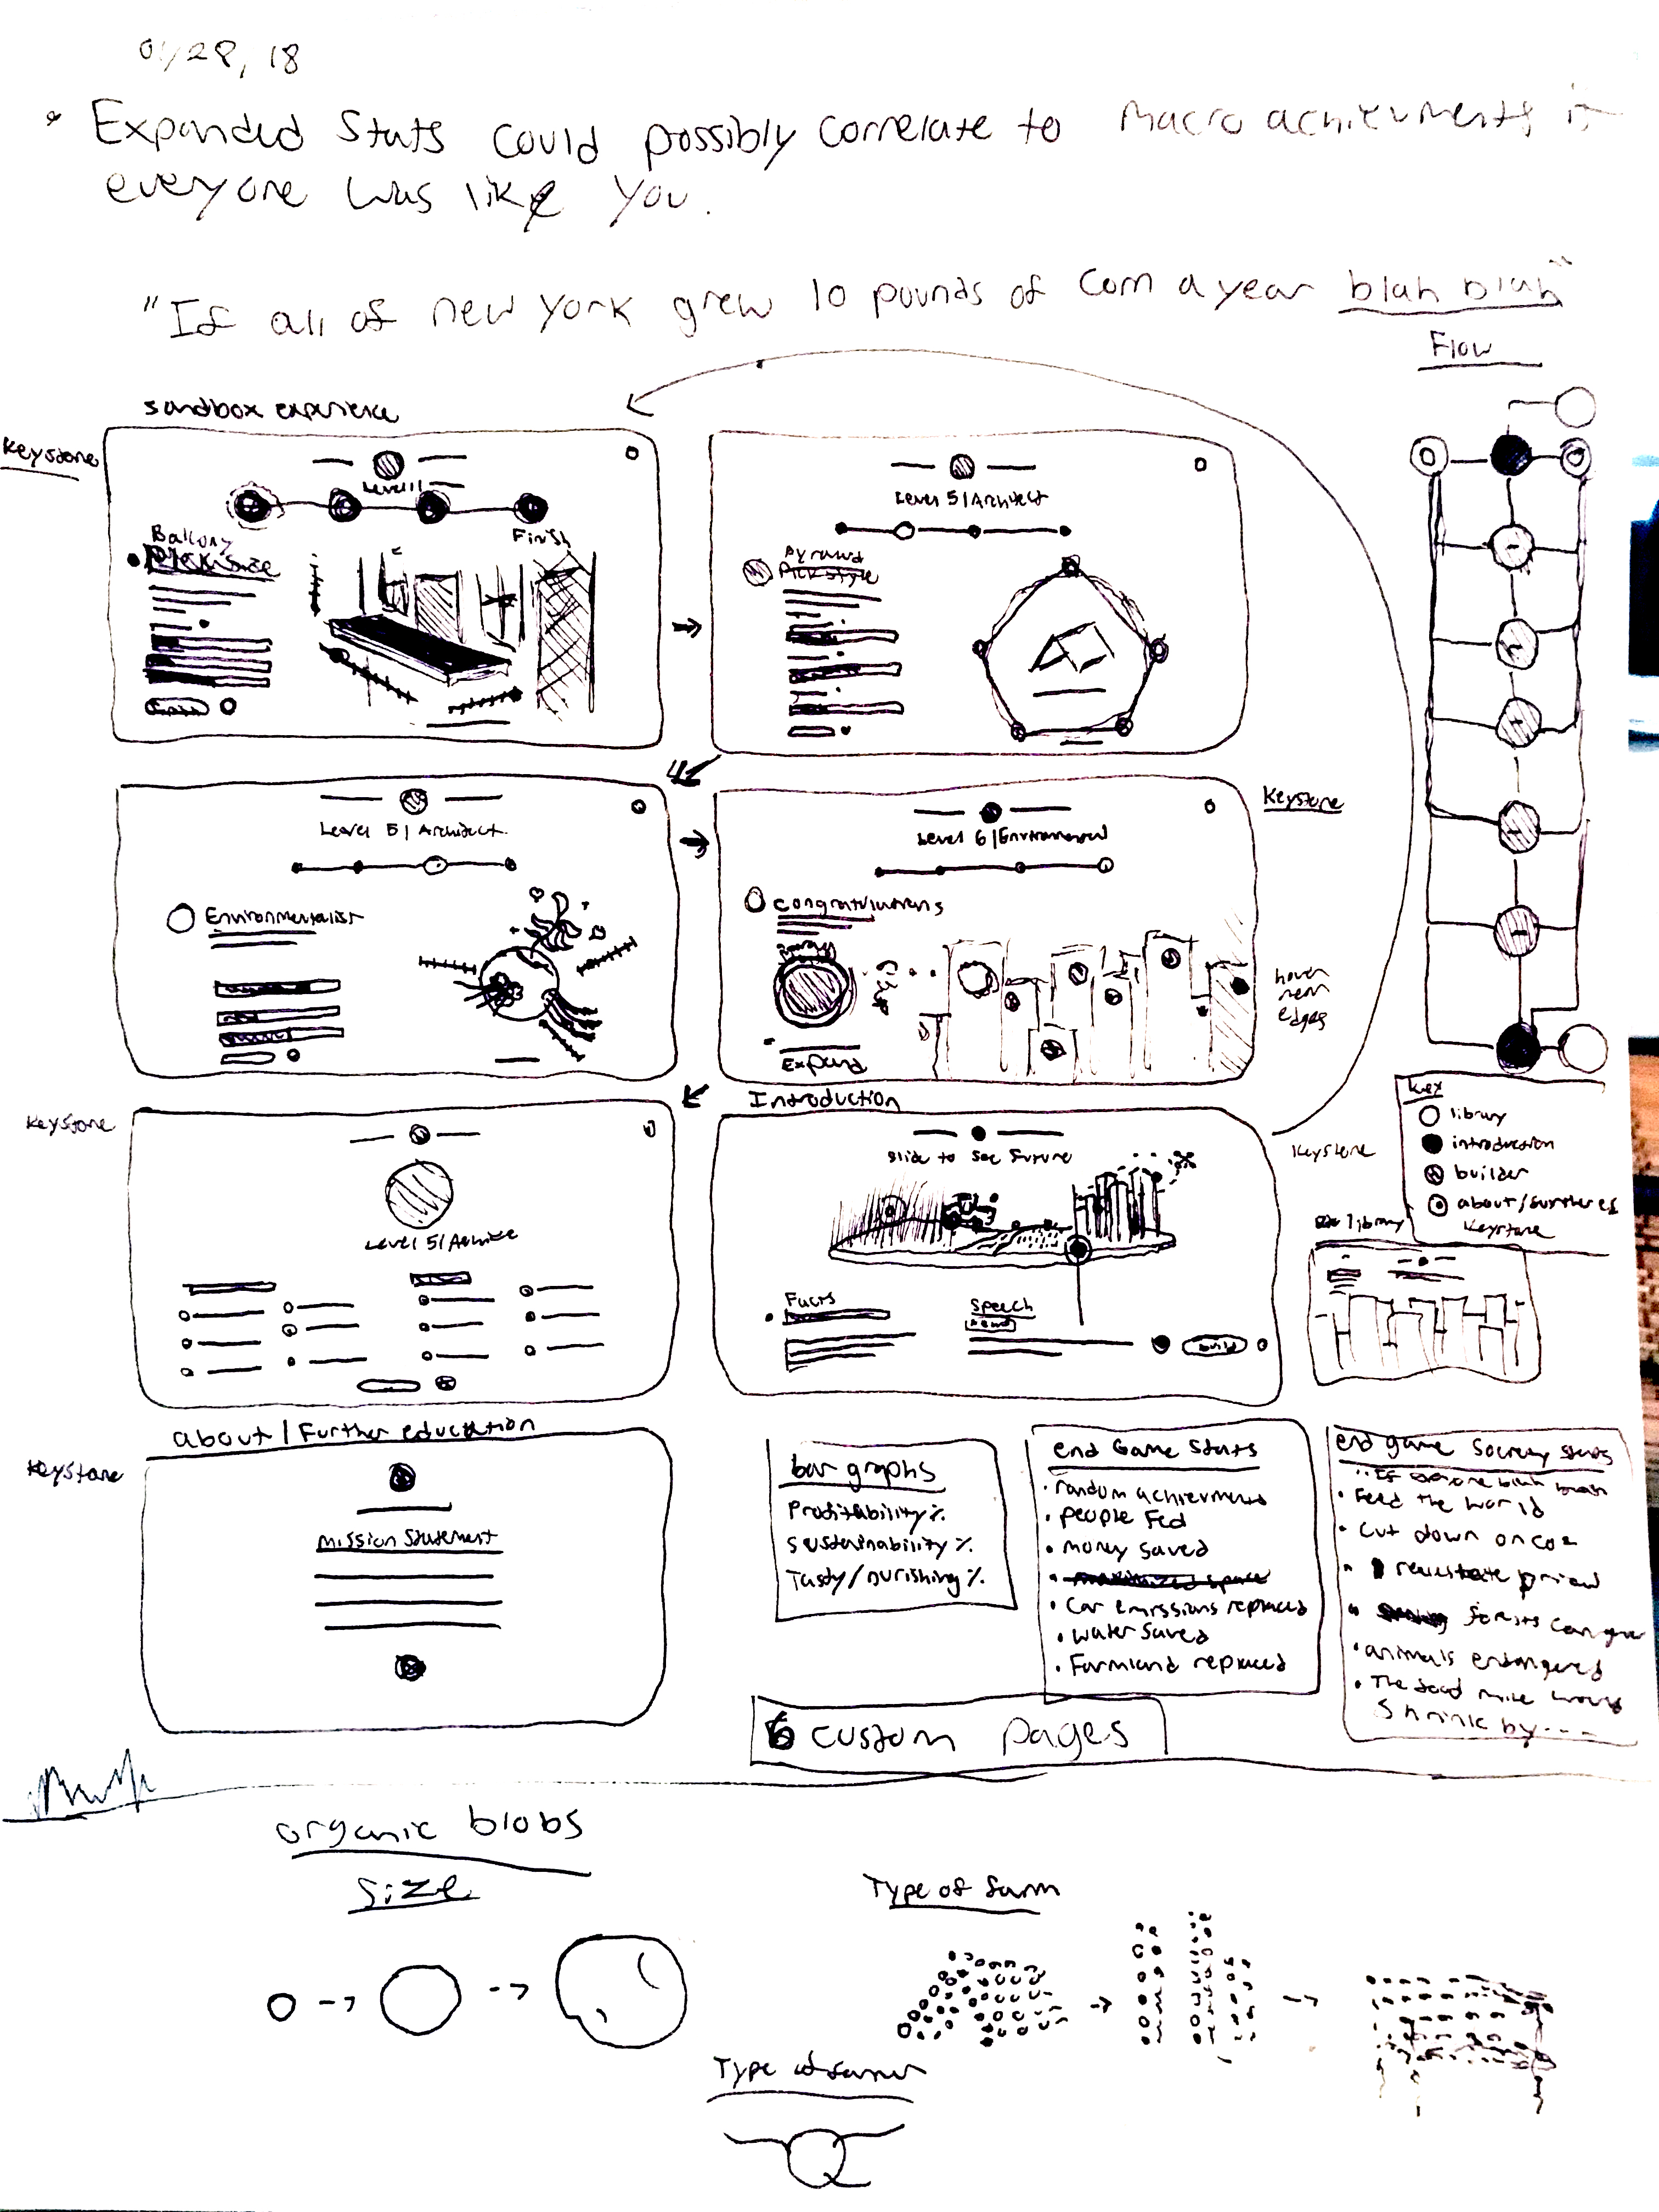 01/28, 18
• Expanded Stats could possibly correlate to macro achievments if
everyone was like you.
"If all of new york grew 10 pounds of corn a year blah blah"
Flow
sandbox experience
Keystone
Level 1
Balcony
Finish
Level 5 | Architect
Pyramid
Pick style
Level 5 | Architect
Environmentalist
Keystone
Level 6 | Environmental
Congratulations
Expand
hover
near
edges
Keystone
Level 5 | Archite
Introduction
Keystone
Slide to see future
Facts
Speech
build
Key
library
introduction
builder
about/further ed
Keystone
library
about | Further education
Keystone
Mission Statement
bar graphs
Profitability %
Sustainability %
Tasty/nurishing %
end Game stats
• random achievments
• people Fed
• money saved
• maximized space
• Car emissions replaced
• water saved
• Farmland replaced
end game society stats
"If everyone blah blah
• Feed the world
• Cut down on co2
• forests can grow
• animals endangered
• The food mile would
shrink by ----
6 custom pages
organic blobs
size
Type of farm
Type of farmer